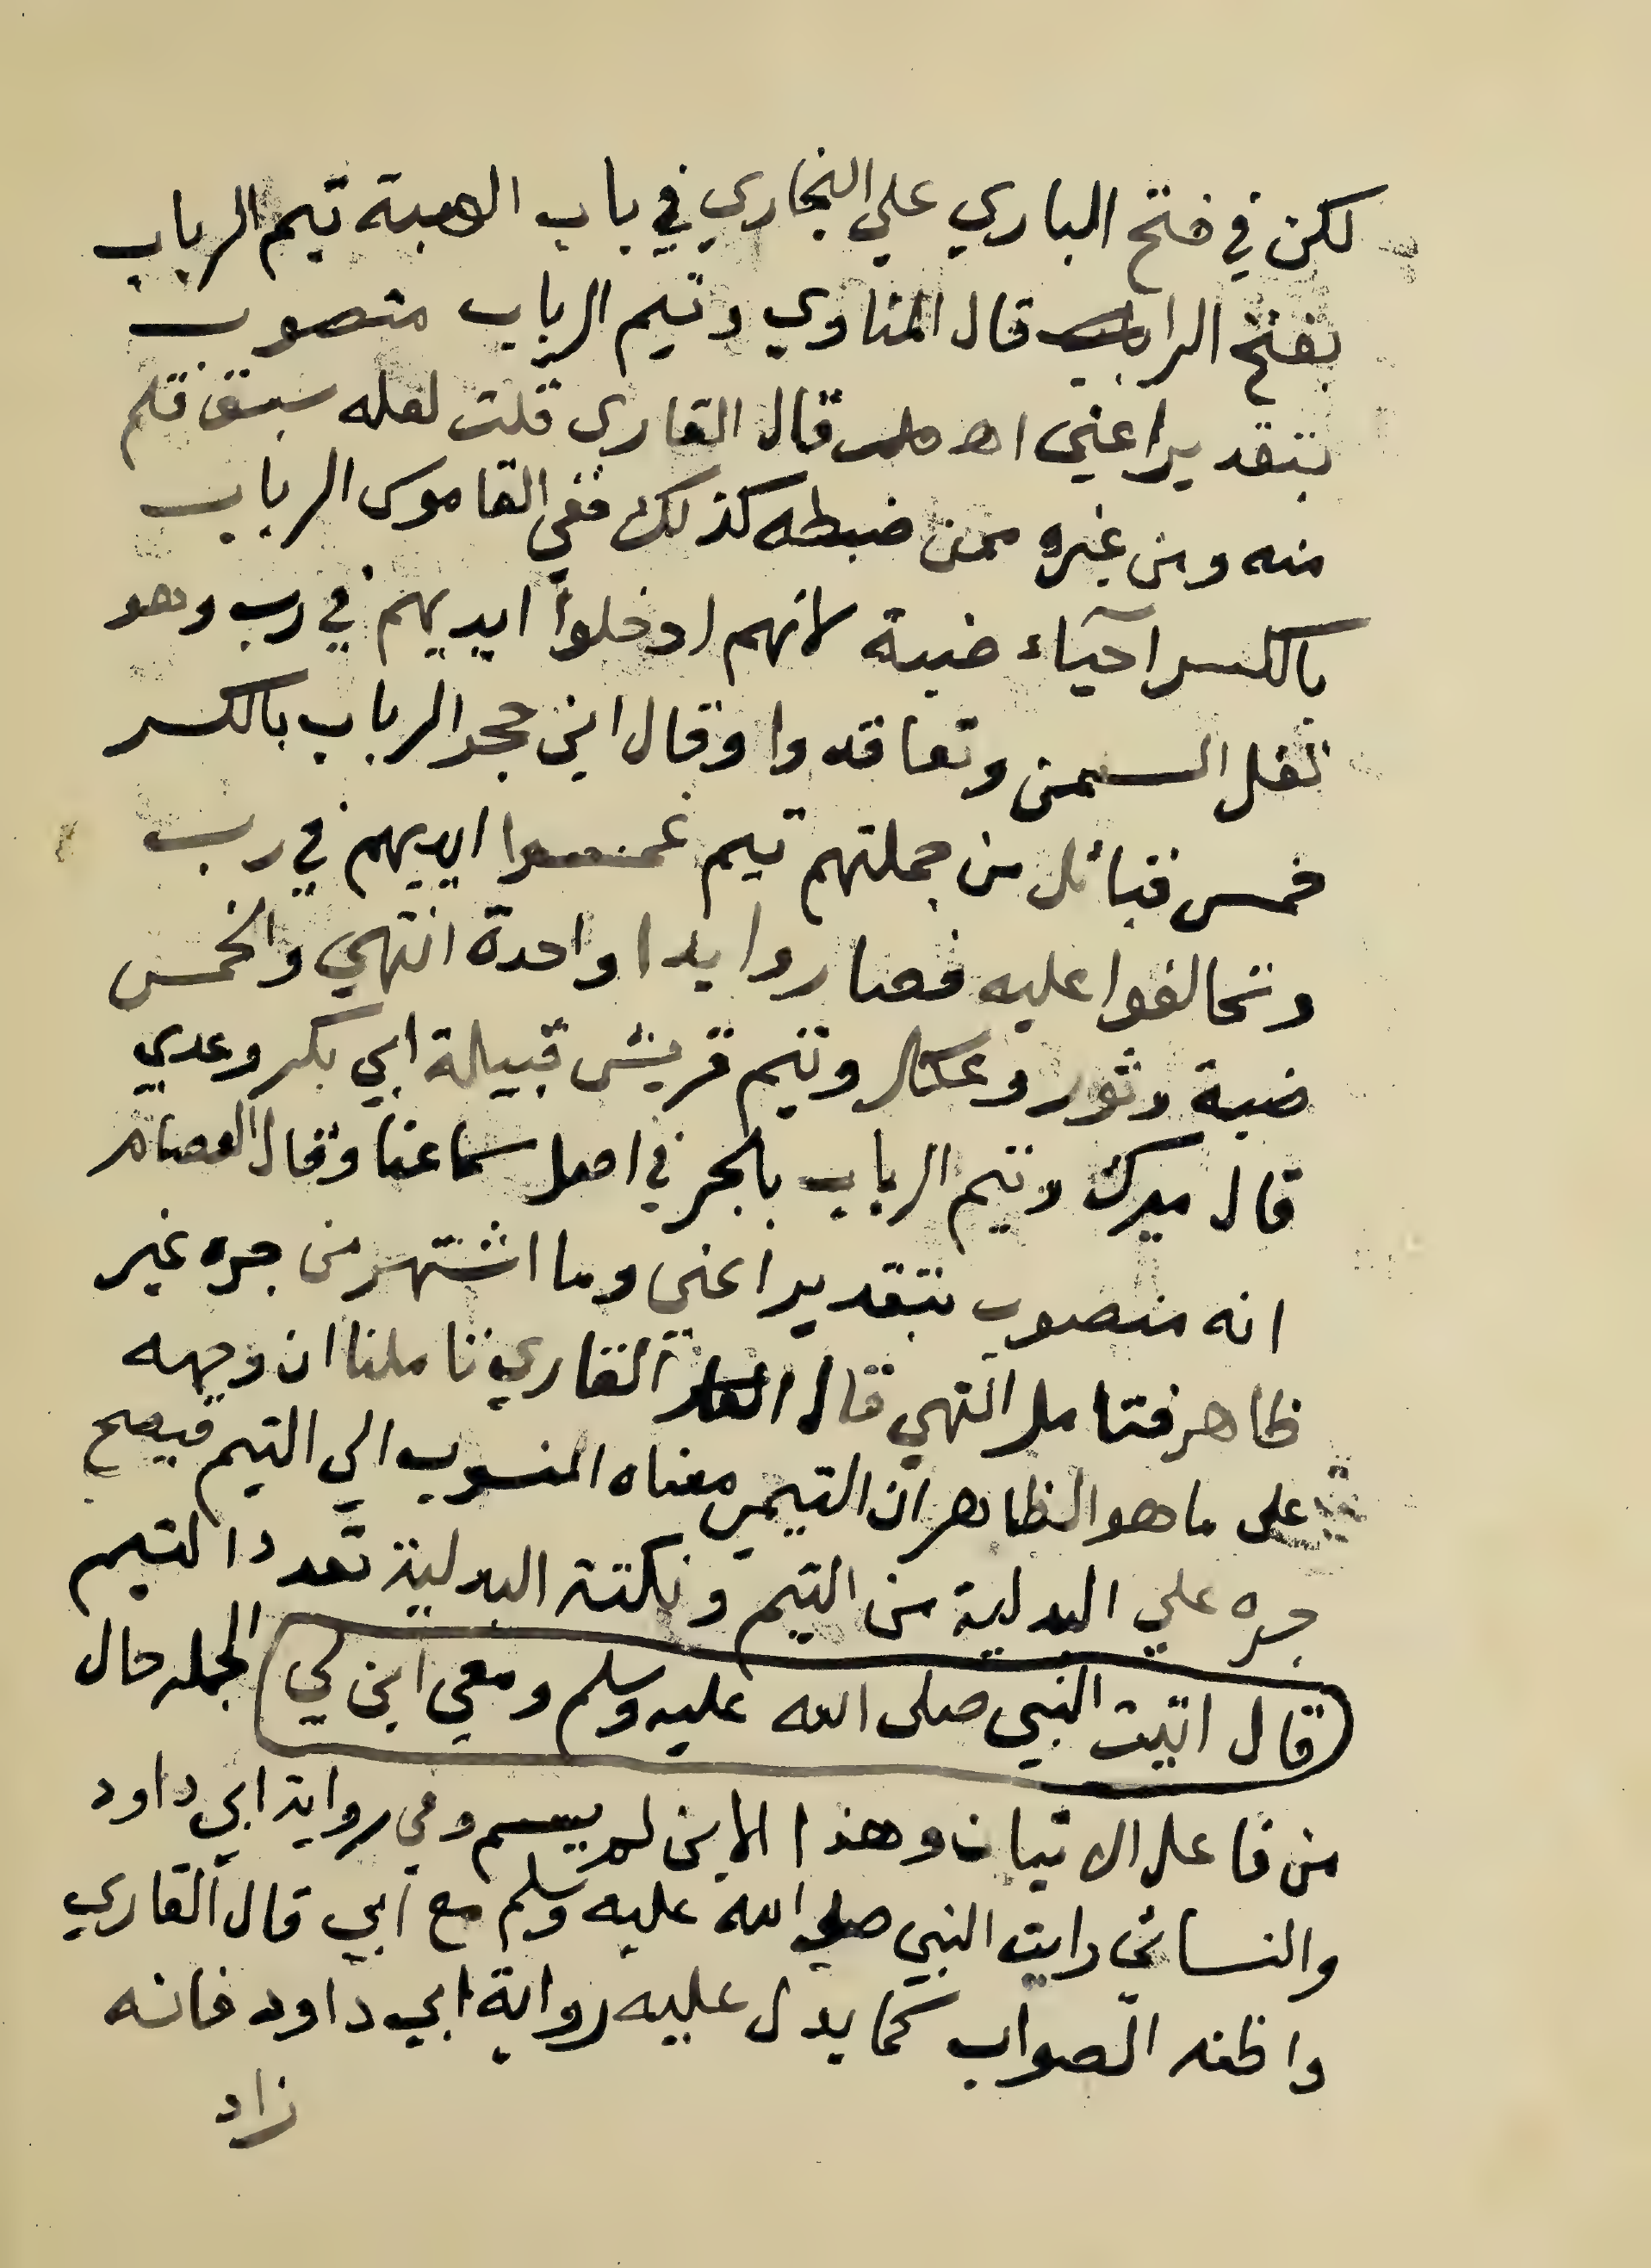 لكن في فتح الباري علي البخاري في باب الهبة تيم الرباب
بفتح الرا قال المناوي وتيم الرباب منصوب
بتقدير اعني اه قال القاري قلت لعله سبق قلم
منه ومن غيره ممن ضبطه كذلك ففي القاموس الرباب
بالكسر احياء ضبة لانهم ادخلوا ايديهم في رب وهو
ثفل السمن وتعاقدوا وقال ابن حجر الرباب بالكسر
خمس قبائل من جملتهم تيم غمسوا ايديهم في رب
وتحالفوا عليه فصاروا يدا واحدة انتهي والخمس
ضبة وثور وعكل وتيم قريش قبيلة ابي بكر وعدي
قال ميرك وتيم الرباب بالجر في اصل سماعنا وقال العصام
انه منصوب بتقدير اعني وما اشتهر من جره غير
ظاهر فتامل انتهي قال القاري تاملنا ان وجهه
على ما هو الظاهر ان التيمي معناه المنسوب الي التيم فيصح
جره علي البدلية من التيم ونكتة البدلية تعدد التيم
قال اتيت النبي صلى الله عليه وسلم ومعي ابن لي الجمله حال
من فاعل الاتيان وهذا الابن لم يسم وفي رواية ابي داود
والنسائي رايت النبي صلي الله عليه وسلم مع ابي قال القاري
واظنه الصواب كما يدل عليه رواية ابي داود فانه
زاد